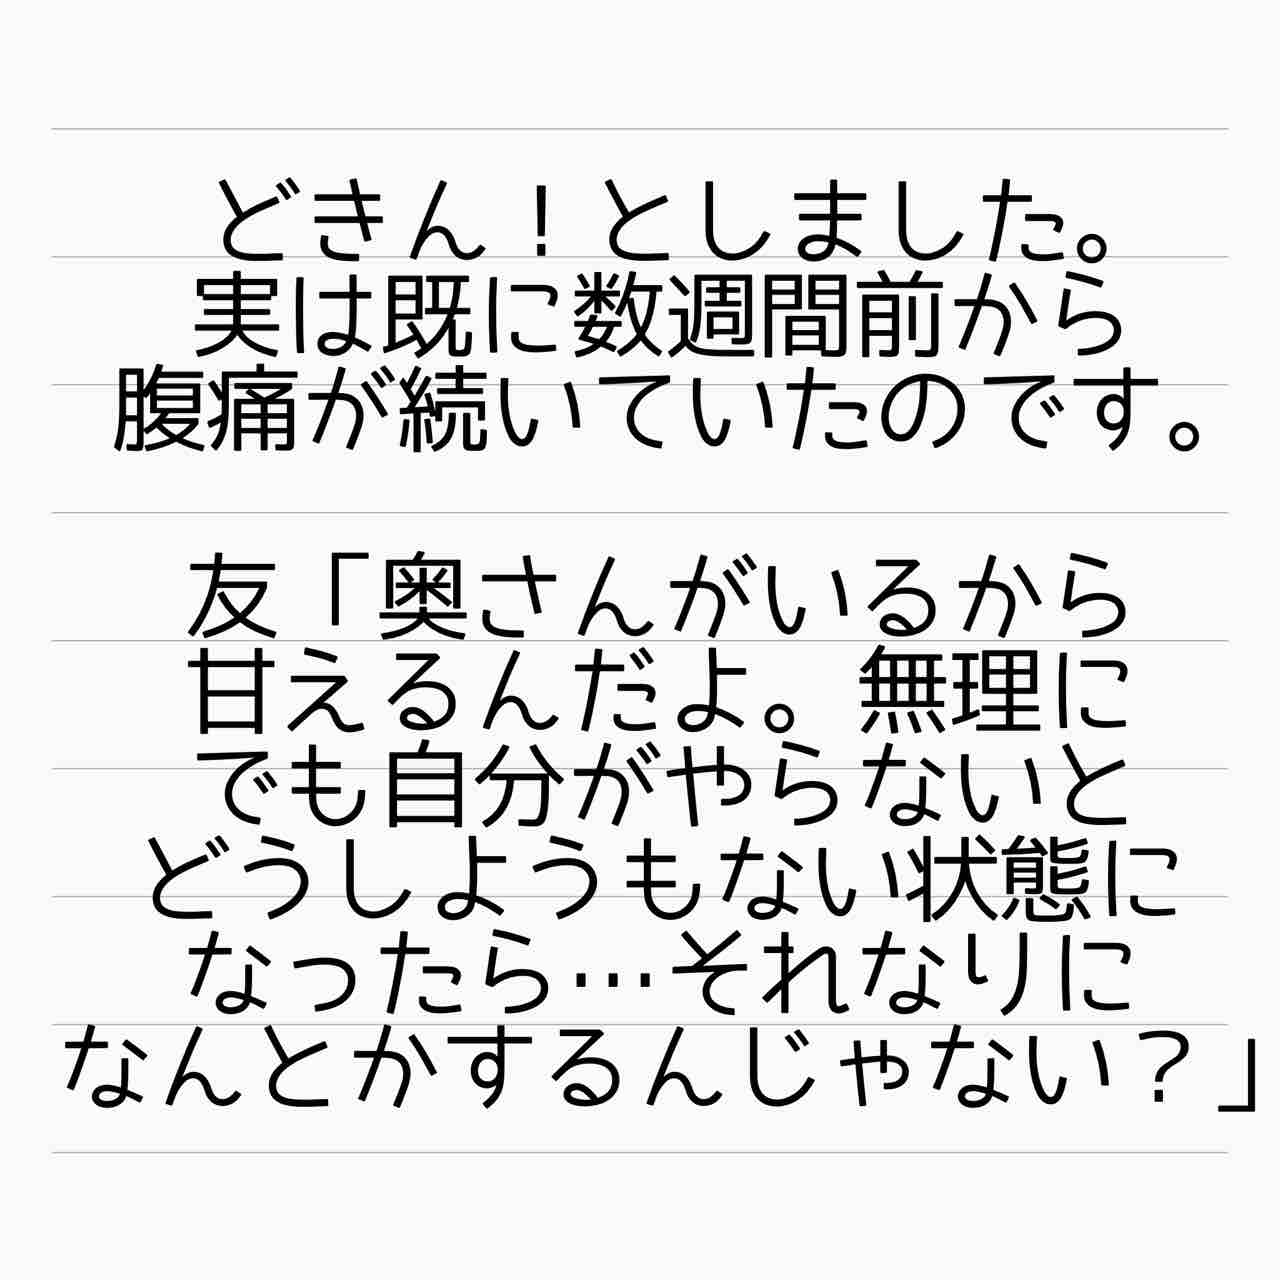 どきん！としました。
実は既に数週間前から
腹痛が続いていたのです。
友「奥さんがいるから
甘えるんだよ。無理に
でも自分がやらないと
どうしようもない状態に
なったら…それなりに
なんとかするんじゃない？」